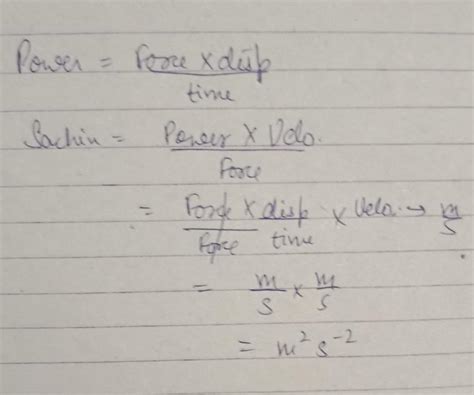 Power = Force x disp / time
Sachin = Power x Velo. / Force
= Force x disp / Force time x Velo. → m/s
= m/s x m/s
= m² s⁻²